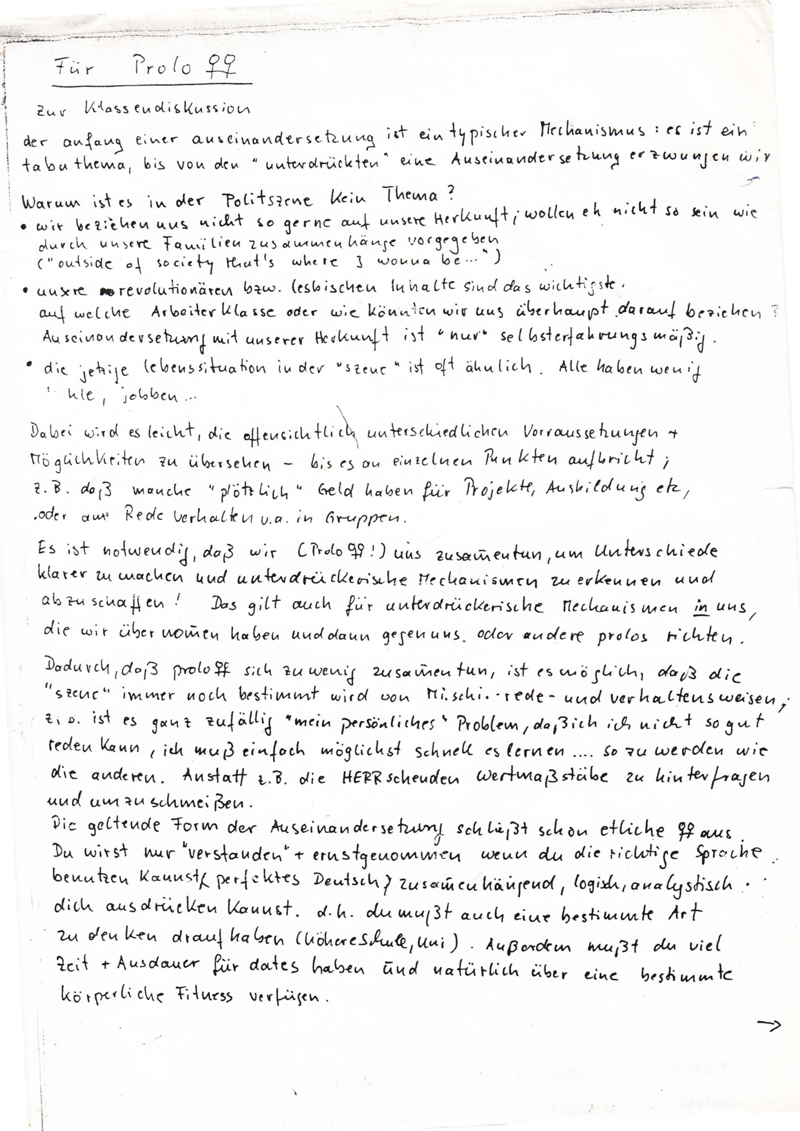 Für Prolo ♀♀
zur Klassendiskussion
der anfang einer auseinandersetzung ist ein typischer Mechanismus: es ist ein
tabuthema, bis von den "unterdrückten" eine Auseinandersetzung erzwungen wir
Warum ist es in der Politszene kein Thema?
• wir beziehen uns nicht so gerne auf unsere Herkunft; wollen eh nicht so sein wie
durch unsere Familienzusammenhänge vorgegeben
("outside of society that's where I wonna be...")
• unsere revolutionären bzw. lesbischen Inhalte sind das wichtigste.
auf welche Arbeiterklasse oder wie könnten wir uns überhaupt darauf beziehen?
Auseinandersetzung mit unserer Herkunft ist "nur" selbsterfahrungsmäßig.
• die jetzige lebenssituation in der "szene" ist oft ähnlich. Alle haben wenig
hle, jobben...
Dabei wird es leicht, die offensichtlich unterschiedlichen Vorraussetzungen +
Möglichkeiten zu übersehen – bis es an einzelnen Punkten aufbricht;
z.B. daß manche "plötzlich" Geld haben für Projekte, Ausbildung etc,
oder am Rede verhalten u.a. in Gruppen.
Es ist notwendig, daß wir (Prolo ♀♀!) uns zusam̅entun, um Unterschiede
klarer zu machen und unterdrückerische Mechanismen zu erkennen und
abzuschaffen! Das gilt auch für unterdrückerische Mechanismen in uns,
die wir übernom̅en haben und dann gegen uns oder andere prolos richten.
Dadurch, daß prolo ♀♀ sich zu wenig zusam̅entun, ist es möglich, daß die
"szene" immer noch bestimmt wird von Mischi-rede- und verhaltensweisen;
z.B. ist es ganz zufällig "mein persönliches" Problem, daß ich ich nicht so gut
reden kann, ich muß einfach möglichst schnell es lernen .... so zu werden wie
die anderen. Anstatt z.B. die HERRschenden Wertmaßstäbe zu hinterfragen
und umzuschmeißen.
Die geltende Form der Auseinandersetzung schließt schon etliche ♀♀ aus.
Du wirst nur "verstanden" + ernstgenommen wenn du die richtige Sprache
benutzen kannst (perfektes Deutsch) zusam̅enhängend, logisch, analystisch
dich ausdrücken kannst. d.h. du mußt auch eine bestimmte Art
zu denken drauf haben (höhere Schule, Uni). Außerdem mußt du viel
Zeit + Ausdauer für dates haben und natürlich über eine bestimmte
körperliche Fitness verfügen.
→